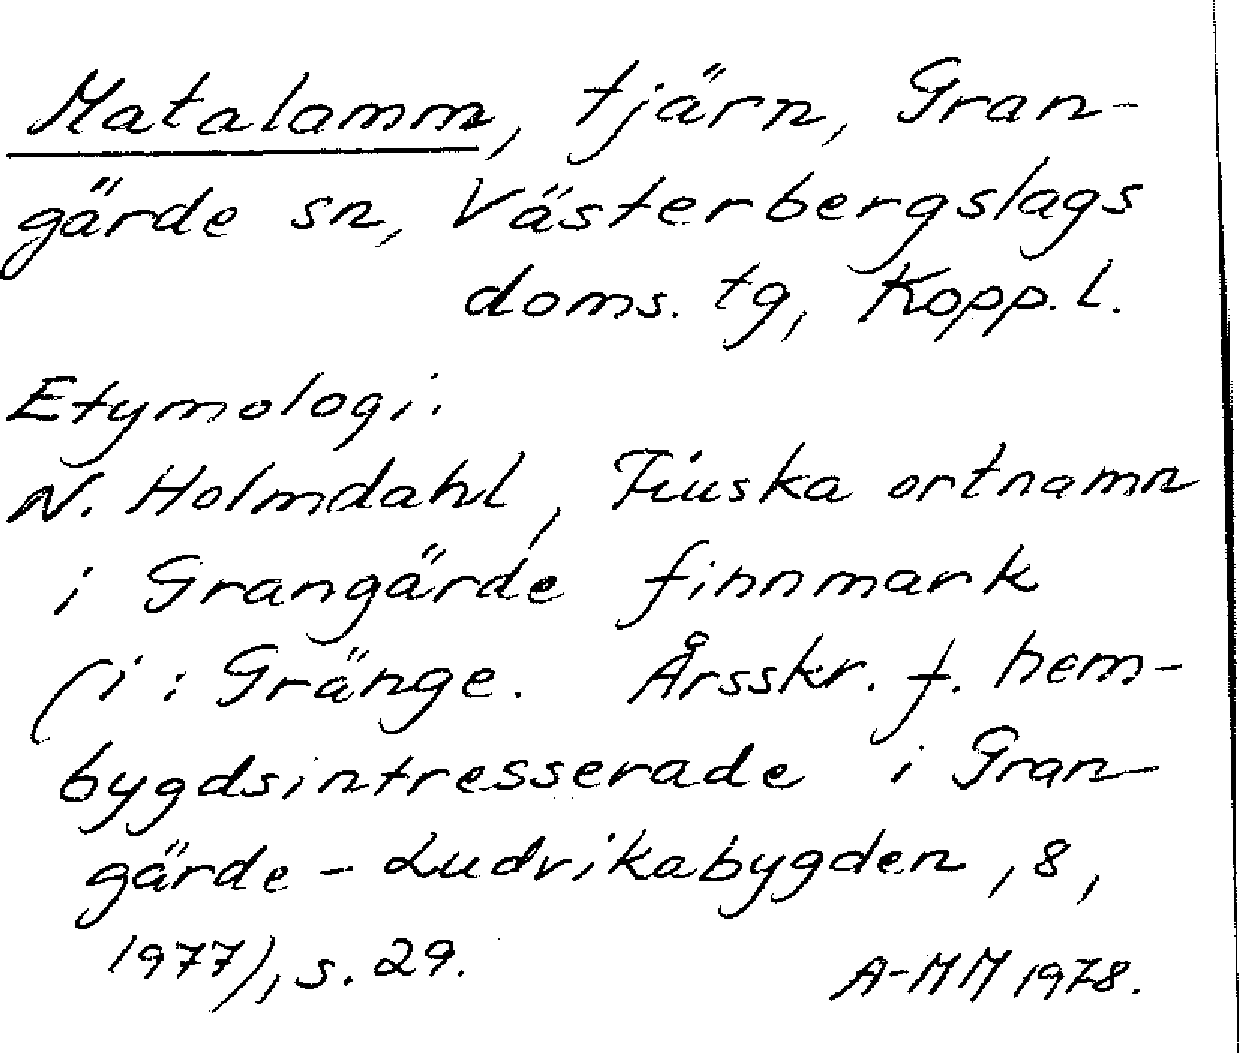 Matalamm, tjärn, Gran-
gärde sn, Västerbergslags
doms. tg, Kopp. l.
Etymologi:
N. Holmdahl, Finska ortnamn
i Grangärde finnmark
(i: Gränge. Årsskr. f. hem-
bygdsintresserade i Gran-
gärde - Ludvikabygden, 8,
1977), s. 29.
A-MM 1978.